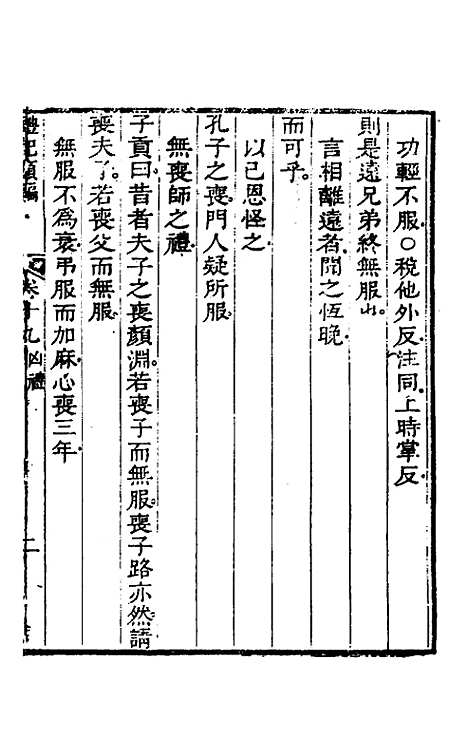 功輕不服〇稅他外反注同上時掌反
則是遠兄弟終無服也
言相離遠者聞之恆晚
而可乎
以己恩怪之
孔子之喪門人疑所服
無喪師之禮
子貢曰昔者夫子之喪顏淵若喪子而無服喪子路亦然請
喪夫子若喪父而無服
無服不為衰弔服而加麻心喪三年
卷十九凶禮 二